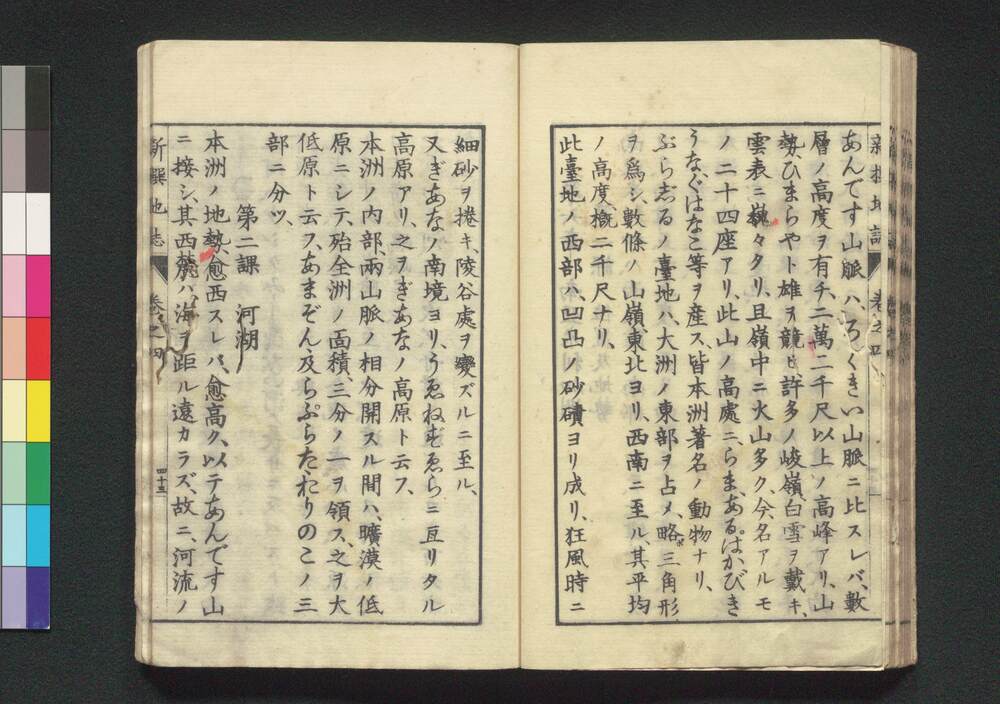 あんです山脈ハ、ろくきい山脈ニ比スレバ、數
層ノ高度ヲ有チ、二萬二千尺以上ノ高峰アリ、山
勢、ひまらやト雄ヲ競ヒ、許多ノ峻嶺、白雪ヲ戴キ、
雲表ニ巍々タリ、且嶺中ニ火山多ク、今名アルモ
ノ二十四座アリ、此山ノ高處ニ、らま、あるぱか、びき
うな、ぐはなこ等ヲ産ス、皆本洲著名ノ動物ナリ、
ぶら志るノ臺地ハ、大洲ノ東部ヲ占メ、略三角形
ヲ爲シ、數條ノ山嶺、東北ヨリ、西南ニ至ル、其平均
ノ高度、概二千尺ナリ、
此臺地ノ西部ハ、凹凸ノ砂磧ヨリ成リ、狂風時ニ
細砂ヲ捲キ、陵谷處ヲ變ズルニ至ル、
又ぎあなノ南境ヨリ、うゑねずゑらニ亘リタル
高原アリ、之ヲぎあなノ高原ト云フ、
本洲ノ内部、兩山脈ノ相分開スル間ハ、曠漠ノ低
原ニシテ、殆全洲ノ面積、三分ノ一ヲ領ス、之ヲ大
低原ト云フ、あまぞん及らぷらた、おりのこノ三
部ニ分ツ、
第二課 河湖
本洲ノ地勢、愈西スレバ、愈高ク、以テあんです山
ニ接シ、其西麓ハ、海ヲ距ル遠カラズ、故ニ、河流ノ
新撰地志 卷之四 四十三